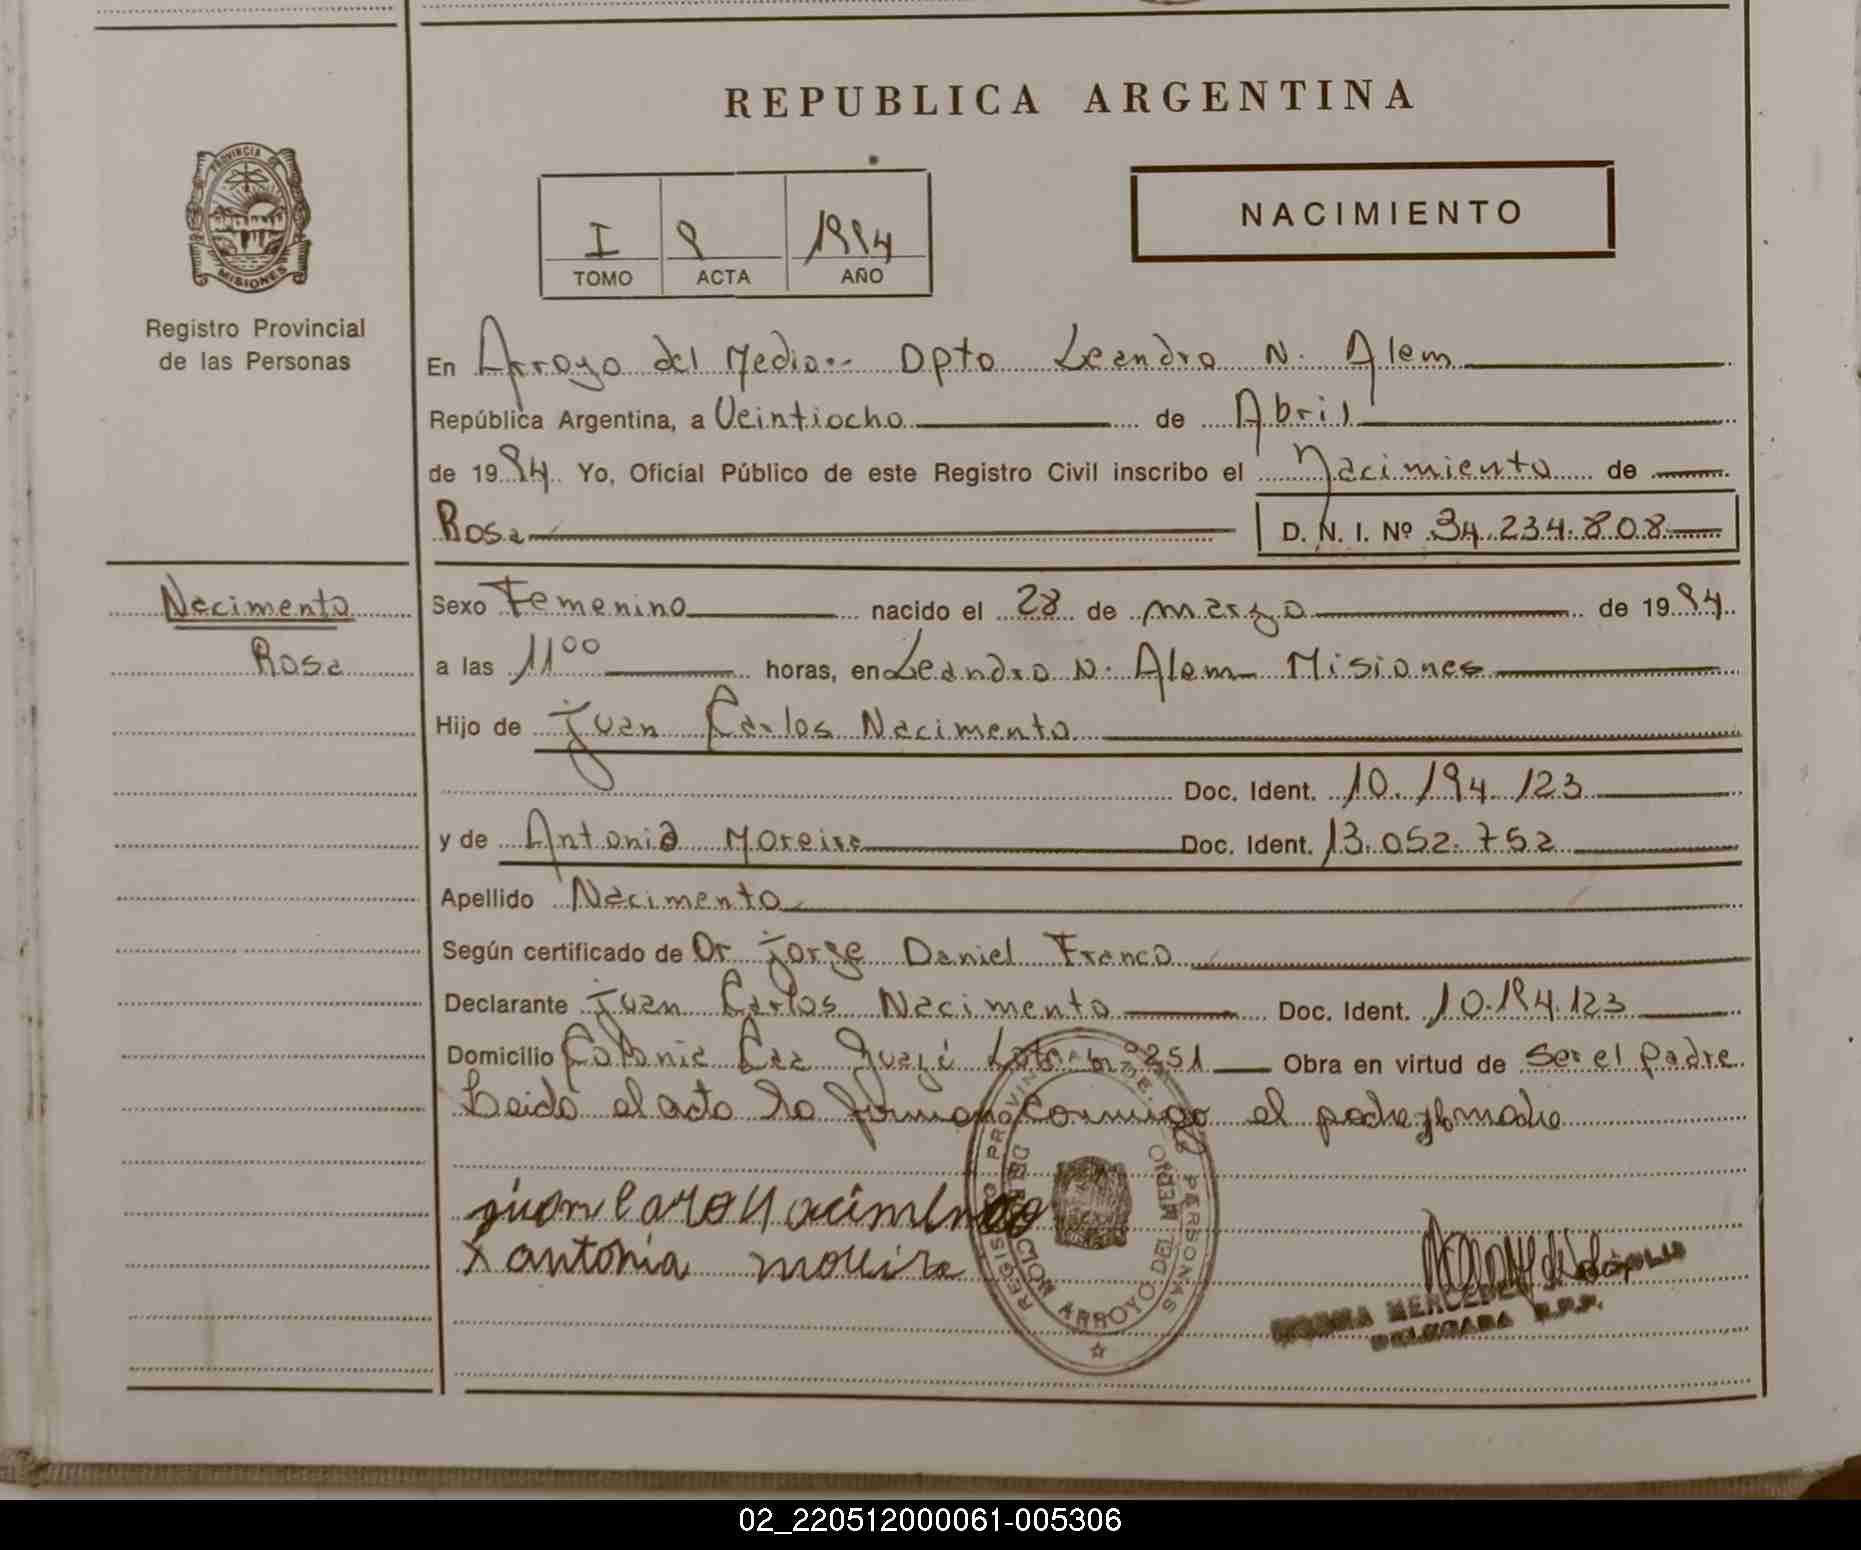 REPUBLICA ARGENTINA
PROVINCIA DE
MISIONES
Registro Provincial
de las Personas
I 9 1994
TOMO ACTA AÑO
NACIMIENTO
En Arroyo del Medio-- Dpto Leandro N. Alem
República Argentina, a Veintiocho de Abril
de 1994 Yo, Oficial Público de este Registro Civil inscribo el Nacimiento de
Rosa D. N. I. Nº 34.234.808
Nacimento
Rosa
Sexo Femenino nacido el 28 de marzo de 1994
a las 11⁰⁰ horas, en Leandro N. Alem Misiones
Hijo de Juan Carlos Nacimento
Doc. Ident. 10.194.123
y de Antonia Moreira Doc. Ident. 13.052.752
Apellido Nacimento
Según certificado de Dr Jorge Daniel Franco
Declarante Juan Carlos Nacimento Doc. Ident. 10.194.123
Domicilio Colonia Caa Guazú Lote nº 251 Obra en virtud de Ser el Padre
Leida el acta la firman conmigo el padre y la madre
juan carlo Nacimento
x antonia moreira
REGISTRO PROVINCIAL DE LAS PERSONAS
DELEGACION ARROYO DEL MEDIO
NORMA MERCEDES
DELEGADA R.P.P.
02_220512000061-005306